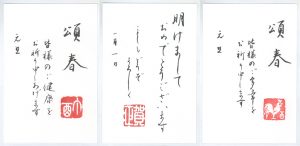 頌春
皆様のご健康を
お祈り申しあげます
元旦
明けまして
おめでとうございます
一月一日
頌春
皆様のご多幸を
お祈り申します
元旦